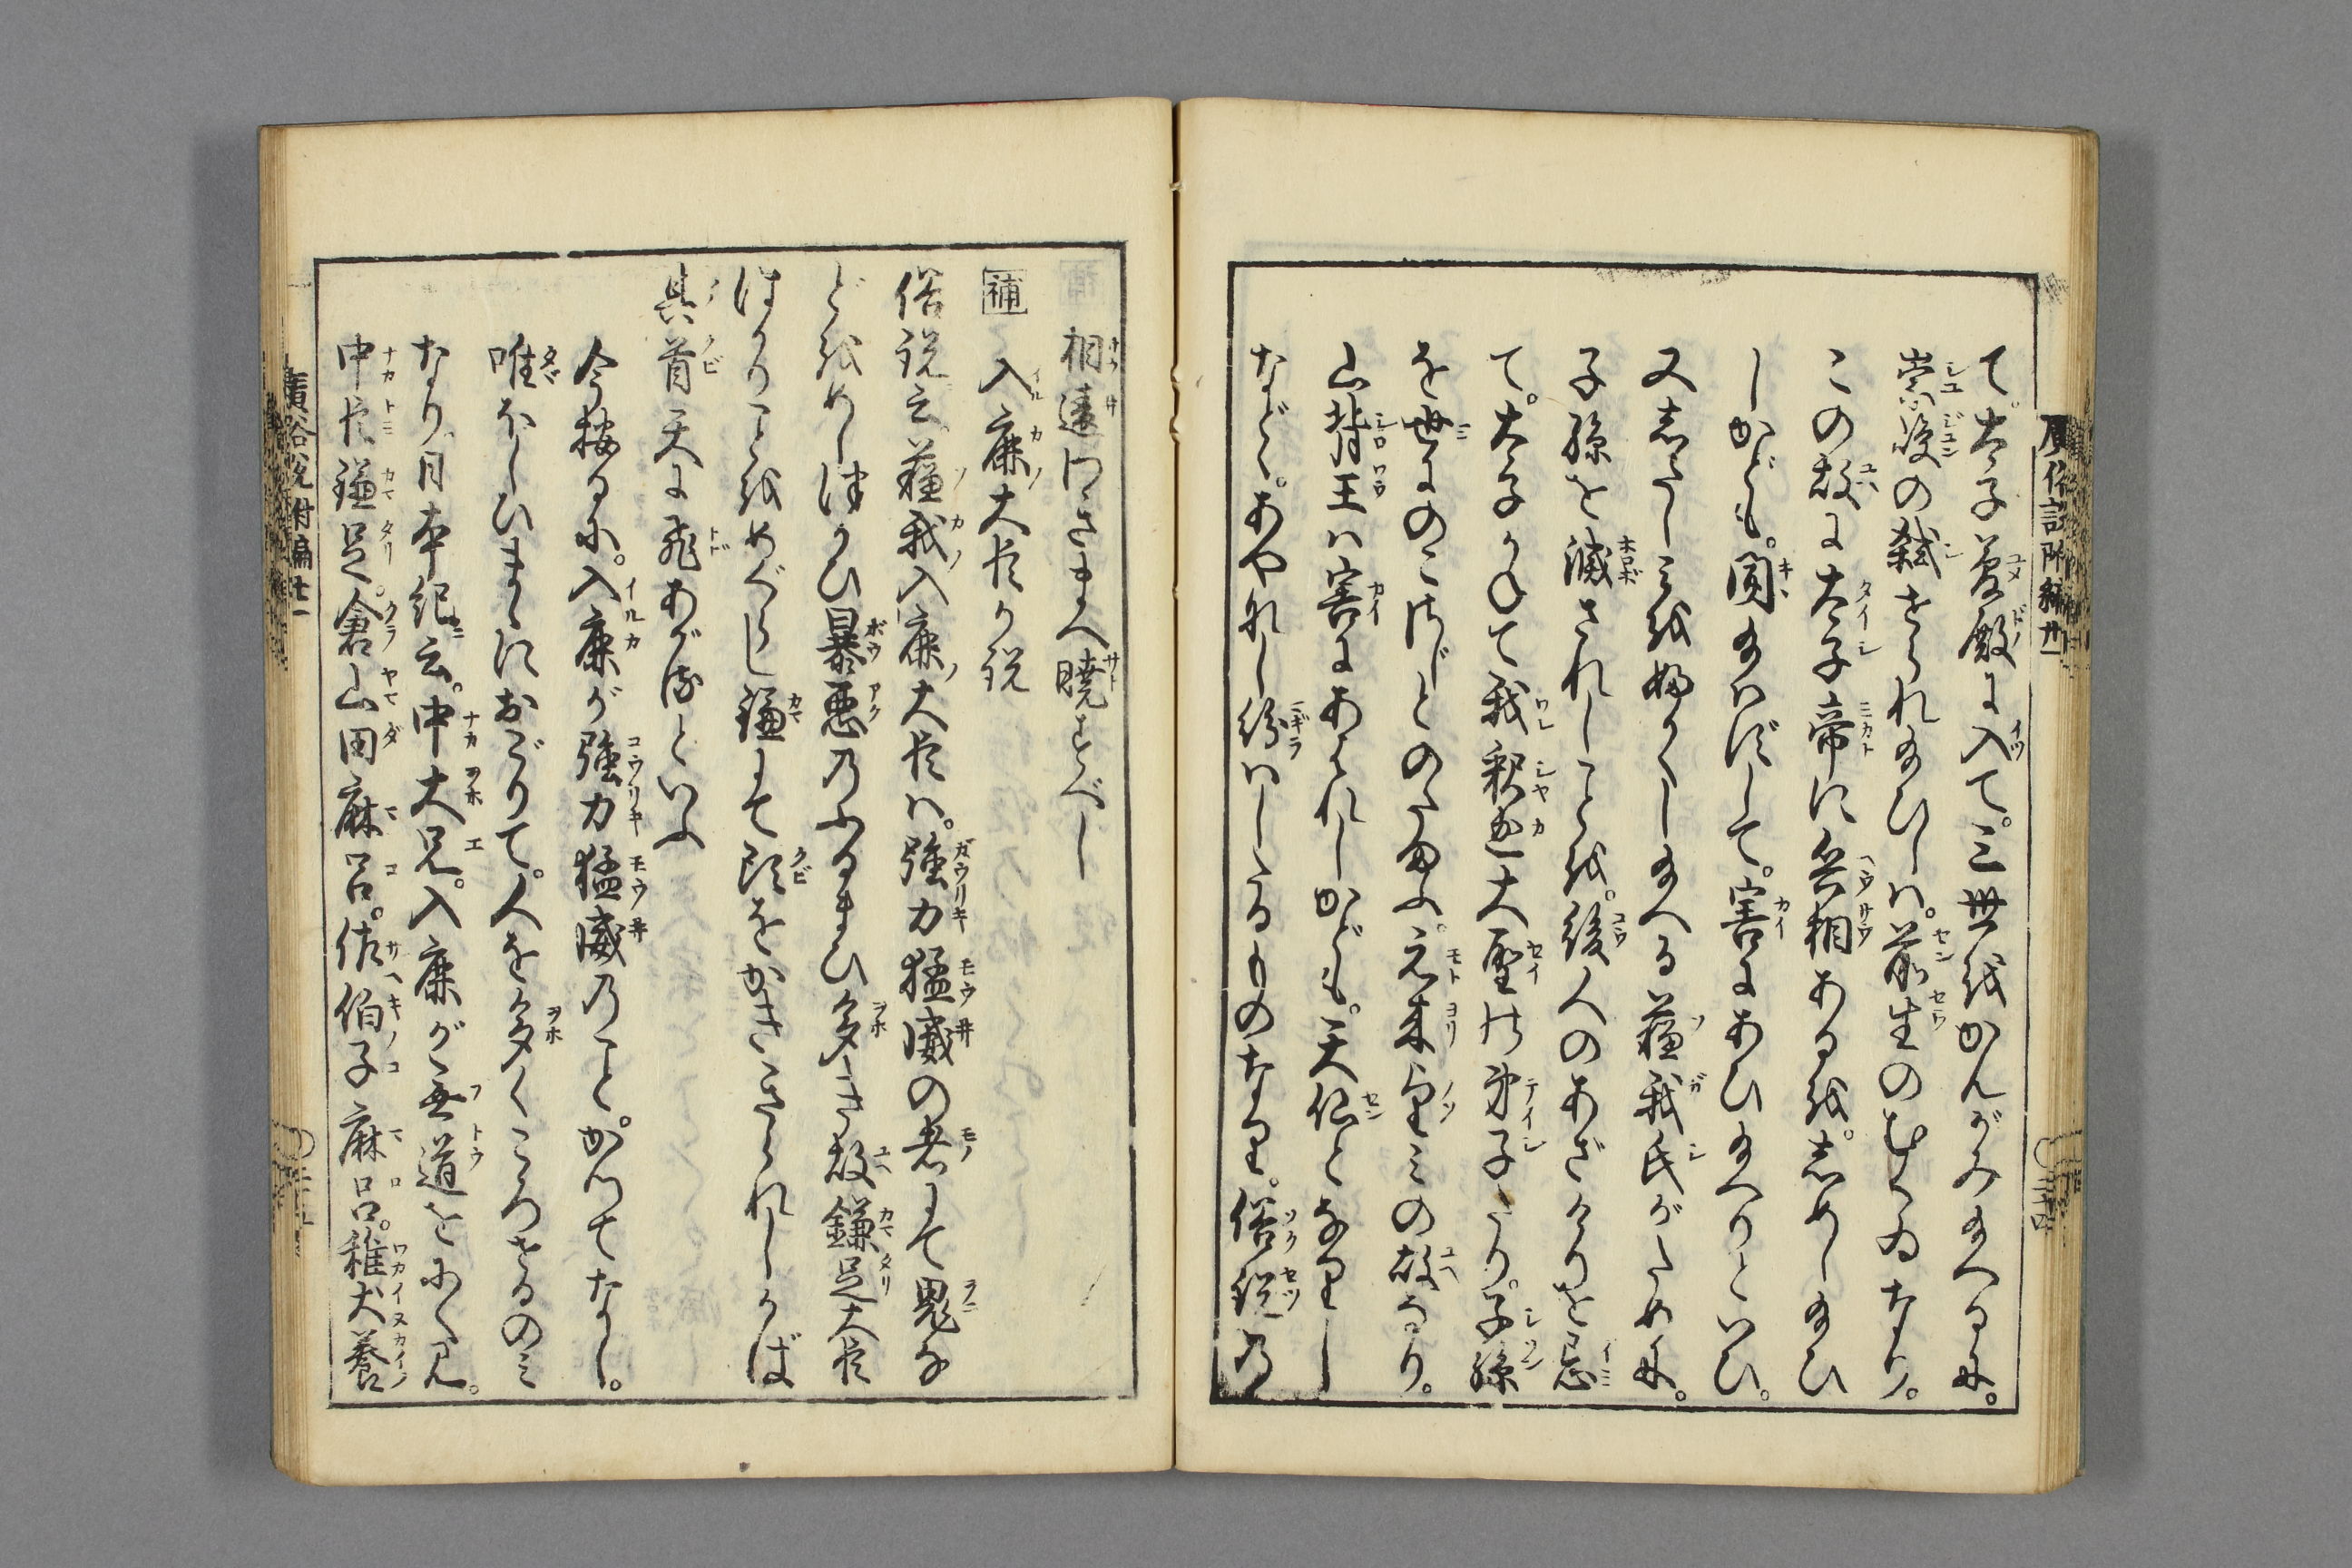 て。太子夢殿に入て。三世をかんがみ給へるに。
崇峻の弑せられ給ひしハ。前生のむくゐなり。
この故に太子帝に兵相あるを。志めし給ひ
しかども。聞給ハずして。害にあひ給へりといひ。
又志たしミを婚くし給へる蘇我氏がために。
子孫を滅されしことを。後人のあざけりを忌
て。太子かねて我釈迦大聖の弟子たり。子孫
を世にのこさじとのたまふ。元来望ミの故なり。
山背王ハ害にあはれしかども。天仙となりし
など〻。あやかし紛ハしたるものなり。俗説の
相違わきまへ暁すべし
補 入鹿大臣の説
俗説云蘇我入鹿大臣ハ。強力猛威の者にて鬼な
どをめしつかひ暴悪乃ふるまひ多き故鎌足大臣
はかりことをめぐらし鎌にて頸をかききられしかば
其首天に飛あがるといふ
今按るに。入鹿が強力猛威乃こと。かつてなし。
唯ほしひまゝにおごりて。人を多くころせるのミ
なり日本紀云。中大兄。入鹿が無道をにくみ。
中臣鎌足。倉山田麻呂。佐伯子麻呂。稚犬養
廣俗説附編廿一